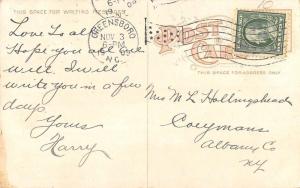 THIS SPACE FOR WRITING MESSAGES
POST
CARD
THIS SPACE FOR ADDRESS ONLY
GREENSBORO
NOV 3
PM
N.C.
Love to all
Hope you are all
well. I will
write you in a few
days
Yours
Harry
Mrs M L Hollingshead
Coeymans
Albany Co
NY